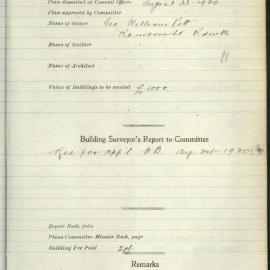 Plan deposited at Council Office, August 23 - 1920.
Plan approved by Committee
Name of Owner Geo William Pitt
Ramsonst Rdwk
Name of Builder
Name of Architect
Value of Buildings to be erected £1000.
Building Surveyor's Report to Committee
Rec for app'l Aug 1920
Report Book, folio
Plans Committee Minute Book, page
Building Fee Paid 20/-
Remarks